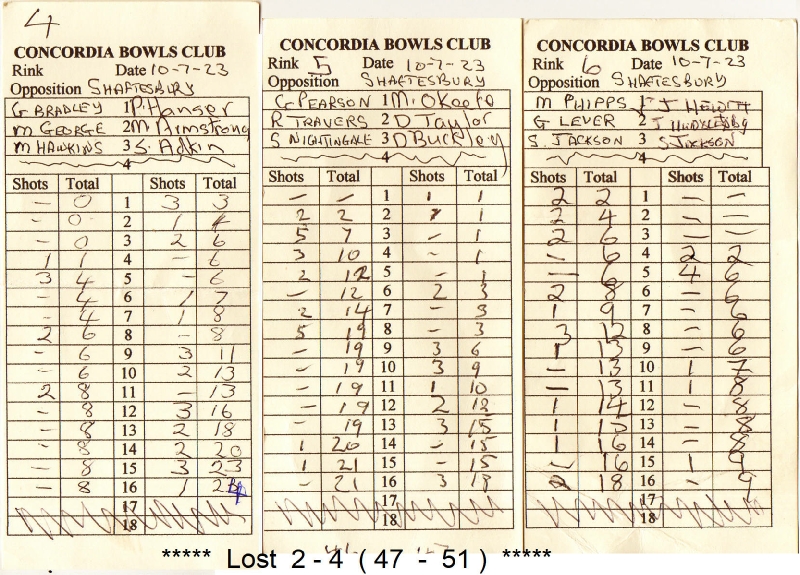 4
CONCORDIA BOWLS CLUB
Rink Date 10-7-23
Opposition SHAFTESBURY
G BRADLEY 1 P. Hanger
M GEORGE 2 M Armstrong
M HAWKINS 3 S. Adkin
4
Shots Total Shots Total
- 0 1 3 3
- 0 2 1 4
- 0 3 2 6
1 1 4 - 6
3 4 5 - 6
- 4 6 1 7
- 4 7 1 8
2 6 8 - 8
- 6 9 3 11
- 6 10 2 13
2 8 11 - 13
- 8 12 3 16
- 8 13 2 18
- 8 14 2 20
- 8 15 3 23
- 8 16 1 24
17
18
CONCORDIA BOWLS CLUB
Rink 5 Date 10-7-23
Opposition SHAFTESBURY
G PEARSON 1 M. OKeefe
R TRAVERS 2 D Taylor
S NIGHTINGALE 3 D Buckley
4
Shots Total Shots Total
- - 1 1 1
2 2 2 - 1
5 7 3 - 1
3 10 4 - 1
2 12 5 - 1
- 12 6 2 3
2 14 7 - 3
5 19 8 - 3
- 19 9 3 6
- 19 10 3 9
- 19 11 1 10
- 19 12 2 12
- 19 13 3 15
1 20 14 - 15
1 21 15 - 15
- 21 16 3 18
17
18
CONCORDIA BOWLS CLUB
Rink 6 Date 10-7-23
Opposition SHAFTESBURY
M PHIPPS 1 J
G LEVER 2 J
S. JACKSON 3 S JACKSON
4
Shots Total Shots Total
2 2 1 - -
2 4 2 - -
2 6 3 - -
- 6 4 2 2
- 6 5 4 6
2 8 6 - 6
1 9 7 - 6
3 12 8 - 6
1 13 9 - 6
- 13 10 1 7
- 13 11 1 8
1 14 12 - 8
1 15 13 - 8
1 16 14 - 8
- 16 15 1 9
2 18 16 - 9
17
18
***** Lost 2 - 4 ( 47 - 51 ) *****